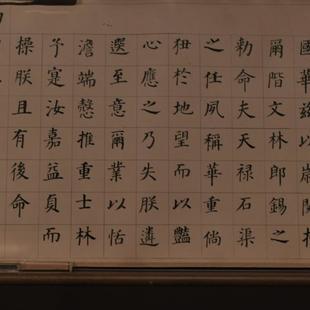 國華
爾階文林郎錫之
勅命夫天禄石渠
之任夙稱華重倘
狃於地望而以豔
心應之乃失朕遴
選至意爾業以恬
澹端慤推重士林
予寔汝嘉益貞而
操朕且有後命